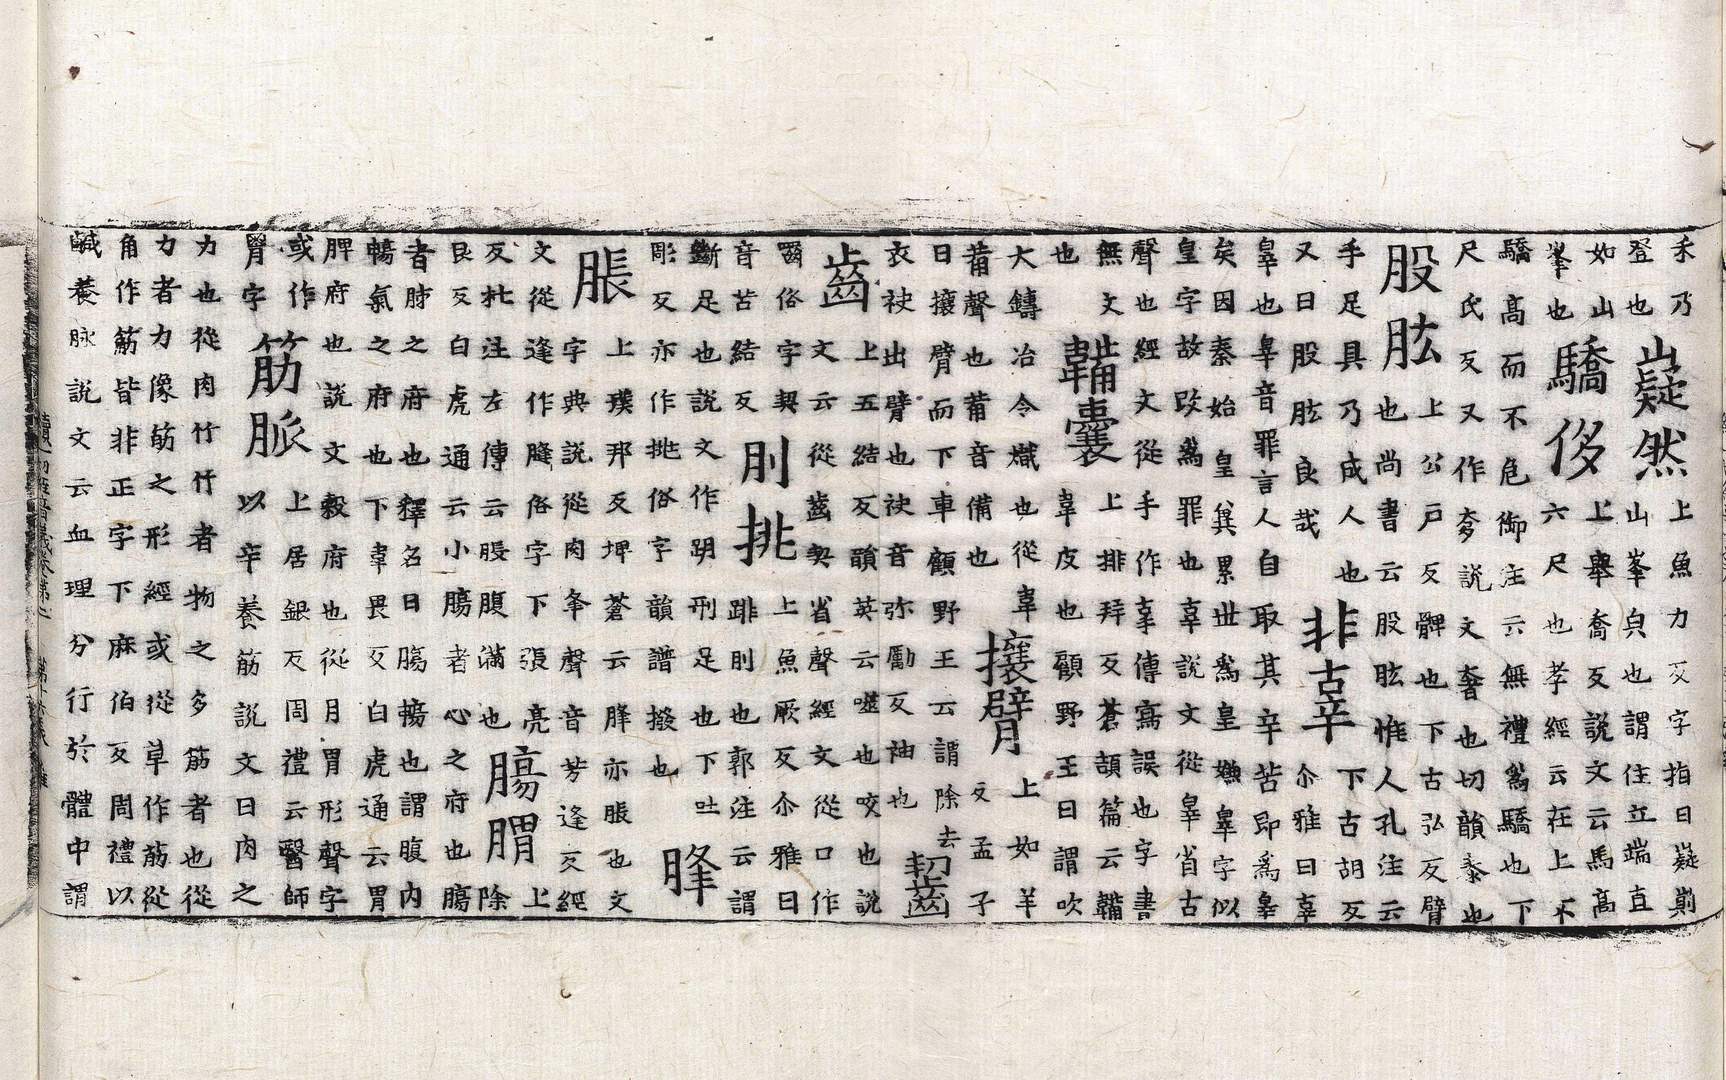 禾乃嶷然上魚力反字指曰嶷崱
登也山峯皃也謂住立端直
如山上舉喬反說文云馬高
峯也驕侈六尺也孝經云在上不
驕高而不危御注云無禮為驕也下
尺氏反又作奓說文奢也切韻泰也
股肱上公戶反髀也下古弘反臂
也尚書云股肱惟人孔注云
手足具乃成人也下古胡反
又曰股肱良哉非辜尒雅曰辜
辠也辠音罪言人自取其辛苦即為辠
矣因秦始皇㠱累世為皇嫌辠字似
皇字故改為罪也辜說文從辠省古
聲也經文從手作㧽傳寫誤也字書
無文鞴囊上排拜反蒼頡篇云鞴
也韋皮也顧野王曰謂吹
大鑄冶令熾也從韋上如羊
𤰇聲也𤰇音備也攘臂反孟子
曰攘臂而下車顧野王云謂除去
衣袂出臂也袂音弥勵反袖也齧
齒上五結反韻英云噬也咬也說
文云從齒㓞省聲經文從口作
嚙俗字㓞上魚厥反尒雅曰
音苦結反刖挑跳刖也郭注云謂
斷足也說文作跀刑足也下吐
彫反亦作挑俗字韻譜撥也胮
脹上璞邦反埤蒼云胮亦脹也文
字典說從肉夅聲音芳逢反經
文從逢作膖俗字下張亮上
反杜注左傳云脹腹滿也腸胃除
良反白虎通云小腸者心之府也腸
者肺之府也釋名曰腸暢也謂腹內
暢氣之府也下韋畏反白虎通云胃
脾府也說文穀府也從月胃形聲字
或作上居銀反周禮云醫師
胃字筋脈以辛養筋說文曰肉之
力也從肉竹竹者物之多筋者也從
力者力像筋之形經或從草作荕從
角作觔皆非正字下麻伯反周禮以
鹹養脉說文云血理分行於體中謂